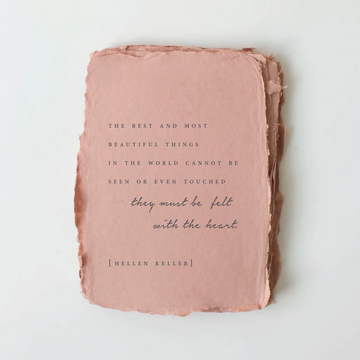 THE BEST AND MOST
BEAUTIFUL THINGS
IN THE WORLD CANNOT BE
SEEN OR EVEN TOUCHED
they must be felt
with the heart.
[HELLEN KELLER]